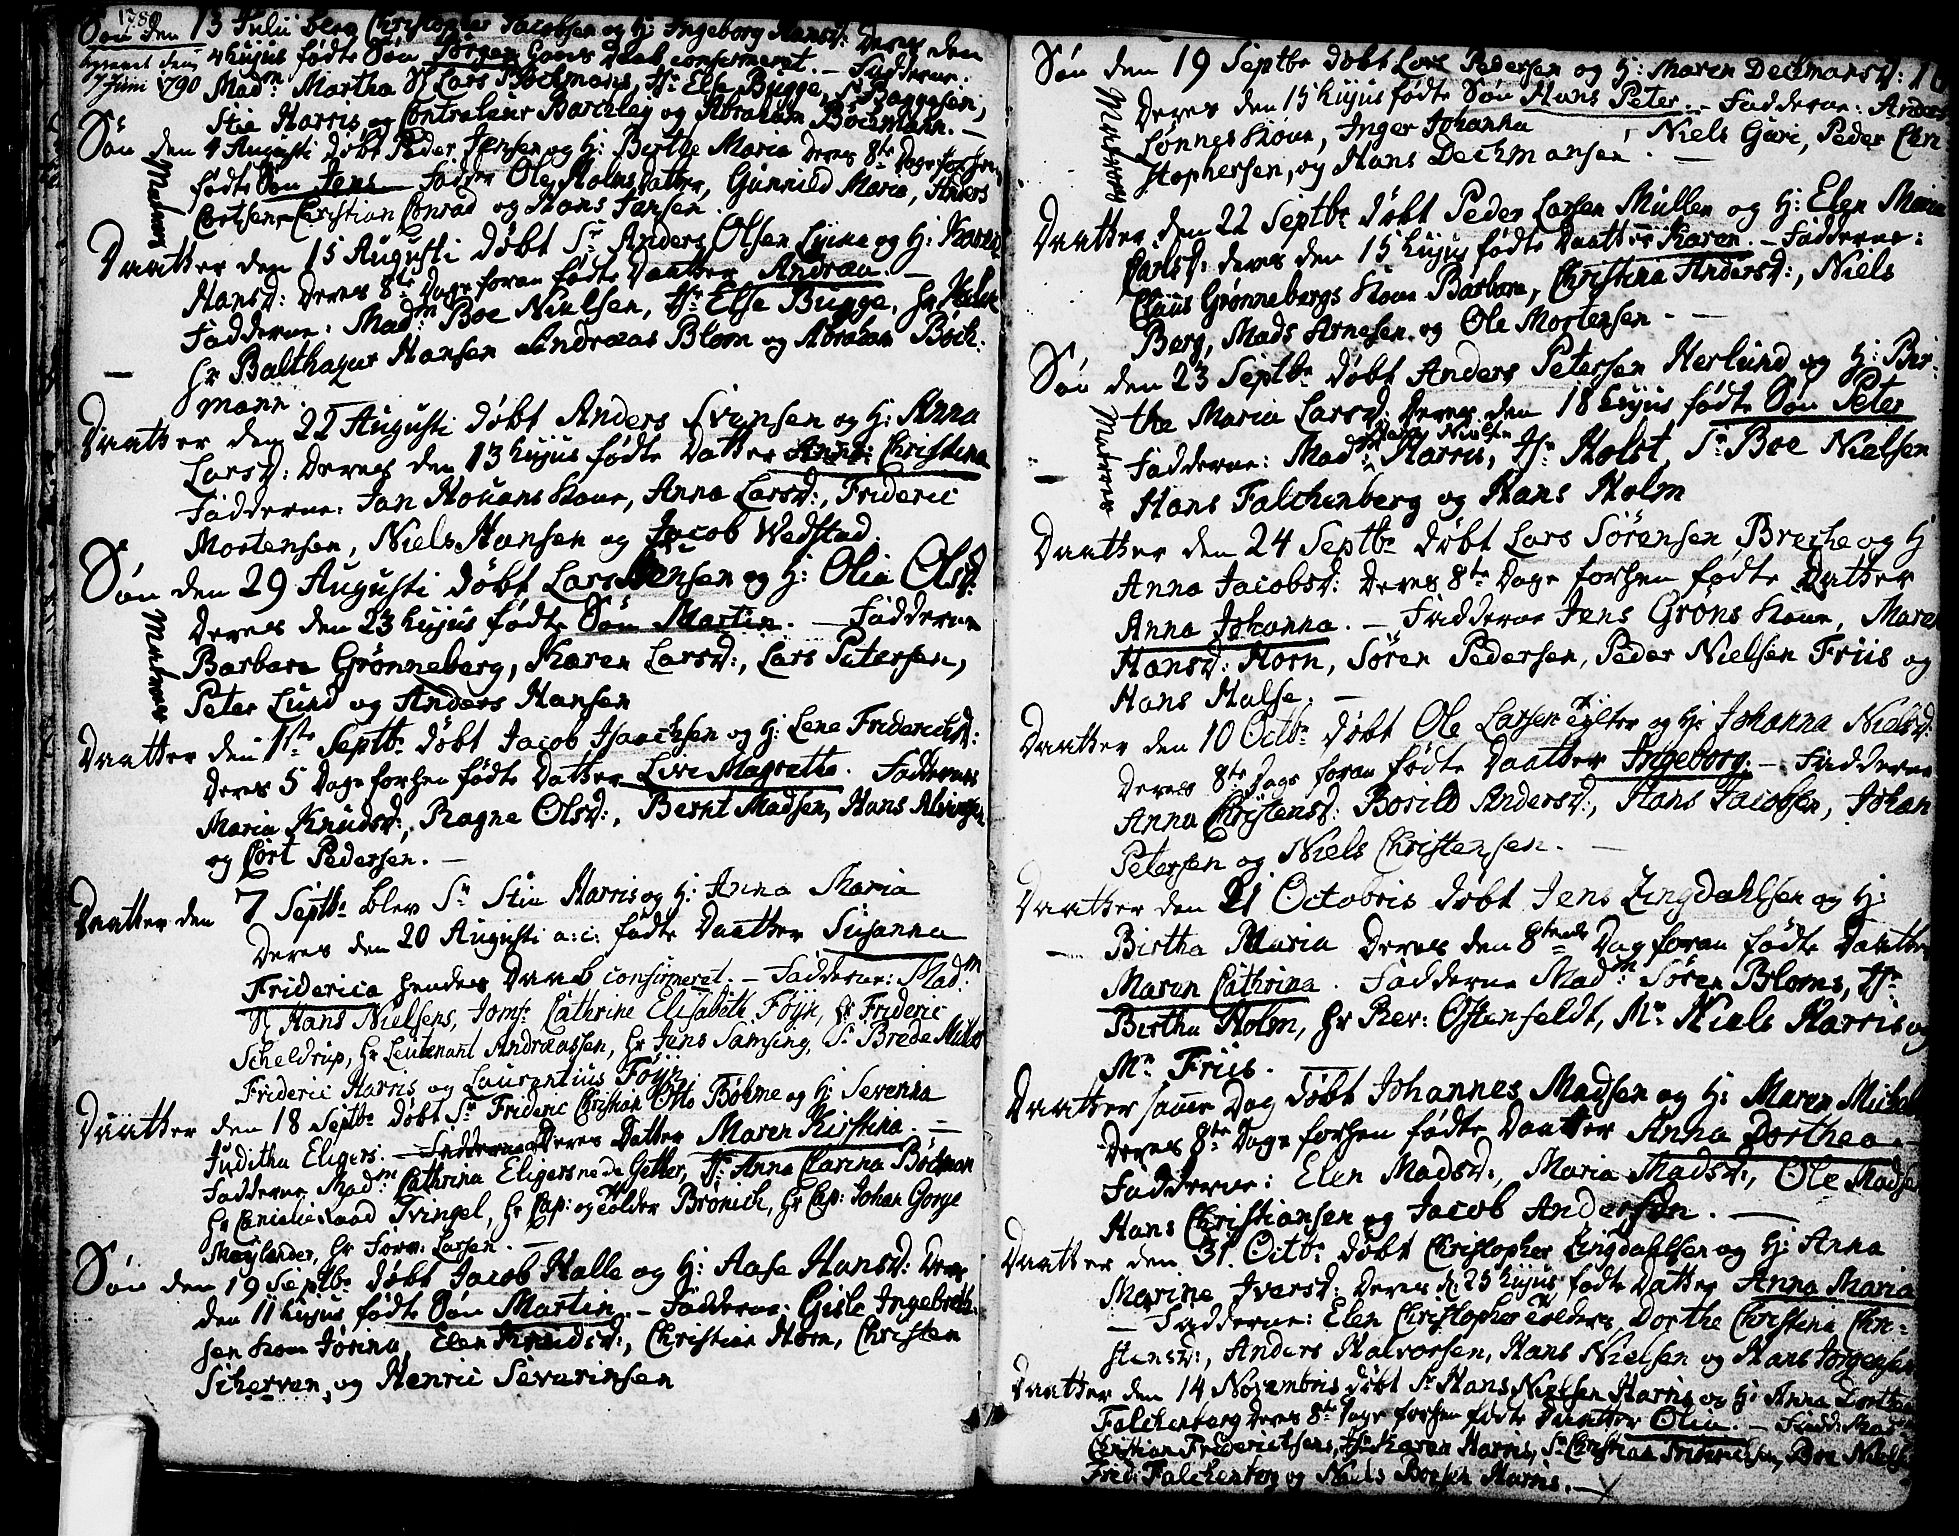 1789
Søn den 13 Julii blev Christopher Jacobsen og H: Ingeborg Hansd: Deres den
4 hujus fødte Søn Jörgen hans Daab confirmeret. — Fadderne:
7 Juni 1790 Madm Martha Sl Lars Bochmans, Jfr Else Bugge, Sr Baggesen,
Stie Harris, og Contraleur Barclay og Abraham Böckmann. —
Søn den 4 Augusti döbt Peder Jensen og H: Birthe Maria Deres 8te Dage forhen
fødte Søn Jens Fadder Ole Holms Datter, Gunnild Maria, Anders
Cortsen, Christian Conrad og Hans Jansen.
Daatter den 15 Augusti döbt Sr Anders Olsen Lyine og H: Karen
Hansd: Deres 8te Dage foran fødte Daatter Andrea. —
Fadderne: Madm Boe Nielsen, Jfr Else Bugge, Hr
Hr Balthazar Hansen Andreas Blom og Abraham Böck:
mann.
Daatter den 22 Augusti döbt Anders Svensen og H: Anna
Larsd: Deres den 13 hujus fødte Datter Anne Christina
Fadderne: Jan Houens Kone, Anna Larsd:, Frideric
Mortensen, Niels Hansen og Jacob Wedstad.
Søn den 29 Augusti döbt Lars Hansen og H: Olia Olsd:
Deres den 23 hujus fødte Søn Martin. — Fadderne
Barbara Grønneberg, Karen Larsd:, Lars Petersen,
Peter Lund og Anders Hansen
Daatter den 1ste Septbr döbt Jacob Isaachsen og H: Lene Friderichsd:
Deres 5 Dage forhen fødte Datter Live Magrethe. Fadderne
Maria Knudsd:, Ragne Olsd:, Bernt Madsen, Hans Alvingsen
og Cort Pedersen. —
Daatter den 7 Septbr blev Sr Stie Harris og H: Anna Maria
Deres den 20 Augusti a:c: fødte Daatter Susanna
Friderica hendes Daab confirmeret. — Fadderne: Madm
Sl Hans Nielsens, Jomfr Cathrine Elisabeth Föyn, Hr Frideric
Scheldrup, Hr Leutenant Andreassen, Hr Jens Samsing, Sr Brede
Frideric Harris og Laurentius Föyn
Daatter den 18 Septbr döbt Sr Frideric Christian Otto Böhme og H: Severina
Juditha Eligers. — Fadderne Deres Datter Maren Kirstina. —
Fadderne Madm Cathrina Eligers nede Getler, Jfr Anna Carina Böckman
Hr Cancelie Raad Tvingel, Hr Cap: og Tolder Bronich, Hr Cap: Johan Gorge
Maylander, Hr Forv: Larsen. —
Søn den 19 Septbr döbt Jacob Halle og H: Aase Hansd: Deres
den 11 hujus fødte Søn Martin. — Fadderne: Gisle Ingebreth:
sen Kone Jörina, Elen Knudsd:, Christian Horn, Christen
Scherven, og Henric Severinsen
Søn den 19 Septbr döbt Lars Pedersen og H: Maren Dechmansd:
Deres den 15 hujus fødte Søn Hans Peter. — Fadderne: Anders
Lønnes Kone, Inger Johanna, Niels Gari, Peder Chri
stophersen, og Hans Dechmansen. —
Daatter den 22 Septbr döbt Peder Larsen Müller og H: Elen Maria
Carlsd: deres den 15 hujus fødte Daatter Karen. — Fadderne:
Claus Grønnebergs Kone Barbara, Christina Andersd:, Niels
Borg, Mads Arnesen og Ole Mortensen. —
Søn den 23 Septbr döbt Anders Petersen Herlund og H: Bir:
the Maria Larsd: Deres den 18 hujus fødte Søn Peter
Fadderne: Madm Harris, Jfr Holst, Sr Boe Nielsen
Hans Falchenberg og Hans Holm
Daatter den 24 Septbr döbt Lars Sörensen Breche og H
Anna Jacobsd: Deres 8te Dage forhen fødte Datter
Anna Johanna. — Fadderne Jens Gröns Kone, Maren
Hansd: Horn, Sören Pedersen, Peder Nielsen Friis og
Hans Halse. —
Daatter den 10 Octbr döbt Ole Larsen og H: Johanna Nielsd:
Deres 8te Dage foran fødte Daatter Ingeborg. — Fadderne
Anna Christensd: Borild Andersd:, Hans Jacobsen, Johan
Petersen og Niels Christensen. —
Daatter den 21 Octobris döbt Jens Lingdahlsen og H:
Birtha Maria Deres den 8tende Dag foran fødte Daatter
Maren Cathrina. Fadderne Madm Sören Bloms, Jfr
Birtha Holm, Hr Rev: Ostenfeldt, Mr Niels Harris og
Mr Friis. —
Daatter samme Dag döbt Johannes Madsen og H: Maren Michels
Deres 8te Dage forhen fødte Daatter Anna Dorthea. —
Fadderne: Elen Madsd:, Maria Madsd:, Ole Madsen
Hans Christiansen og Jacob Andersen. —
Daatter den 31 Octbr döbt Christopher Lingdahlsen og H: Anna
Marine Iversd: Deres d. 25 hujus fødte Datter Anna Maria
— Fadderne: Elen Christopher Tolders, Dorthe Christina Chri:
stensd:, Anders Halvorsen, Hans Nielsen og Hans Jörgensen
Daatter den 14 Novembris döbt Sr Hans Nielsen Harris og H: Anna Dorthea
Falchenberg Deres 8te Dage forhen fødte Daatter Olea. — Fadd: Mad
Christian Friderichsens, Jfr Karen Harris, Sr Christian Friderichsen, Boe Nielsen
Frid: Falchenberg og Niels Boesen Harris. —